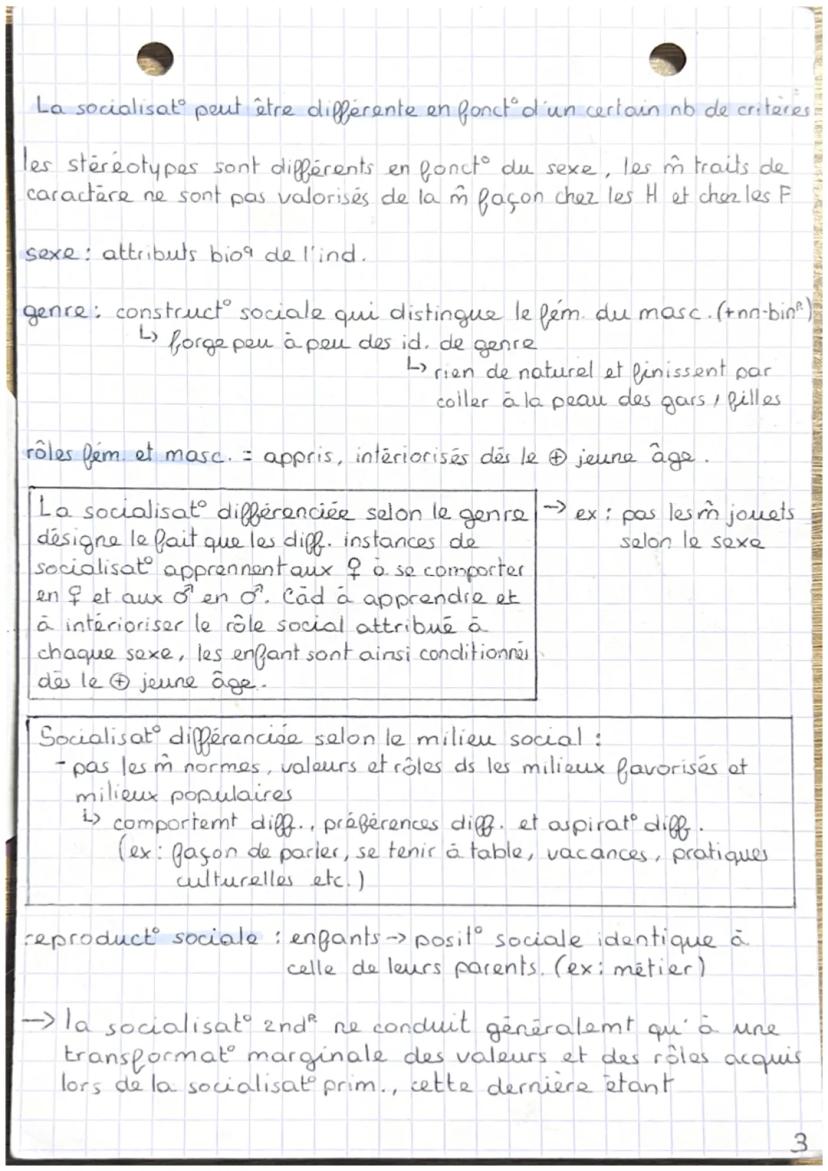 La socialisat° peut être différente en fonct° d'un certain nb de critères
les stéréotypes sont différents en fonct° du sexe, les m̂ traits de
caractère ne sont pas valorisés de la m̂ façon chez les H et chez les F
sexe : attributs bioq de l'ind.
genre : construct° sociale qui distingue le fém. du masc. (+nn-binR)
↳ forge peu à peu des id. de genre
↳ rien de naturel et finissent par
coller à la peau des gars / filles
rôles fém. et masc. = appris, intériorisés dès le ⊕ jeune âge.
La socialisat° différenciée selon le genre → ex : pas les m̂ jouets
désigne le fait que les diff. instances de selon le sexe
socialisat° apprennent aux ♀ à se comporter
en ♀ et aux ♂ en ♂. Càd à apprendre et
à intérioriser le rôle social attribué à
chaque sexe, les enfant sont ainsi conditionnés
dès le ⊕ jeune âge.
Socialisat° différenciée selon le milieu social :
- pas les m̂ normes, valeurs et rôles ds les milieux favorisés et
milieux populaires
↳ comportemt diff., préférences diff. et aspirat° diff.
(ex : façon de parler, se tenir à table, vacances, pratiques
culturelles etc.)
reproduct° sociale : enfants → posit° sociale identique à
celle de leurs parents. (ex : métier)
→ la socialisat° 2ndR ne conduit généralemt qu'à une
transformat° marginale des valeurs et des rôles acquis
lors de la socialisat° prim., cette dernière étant
3